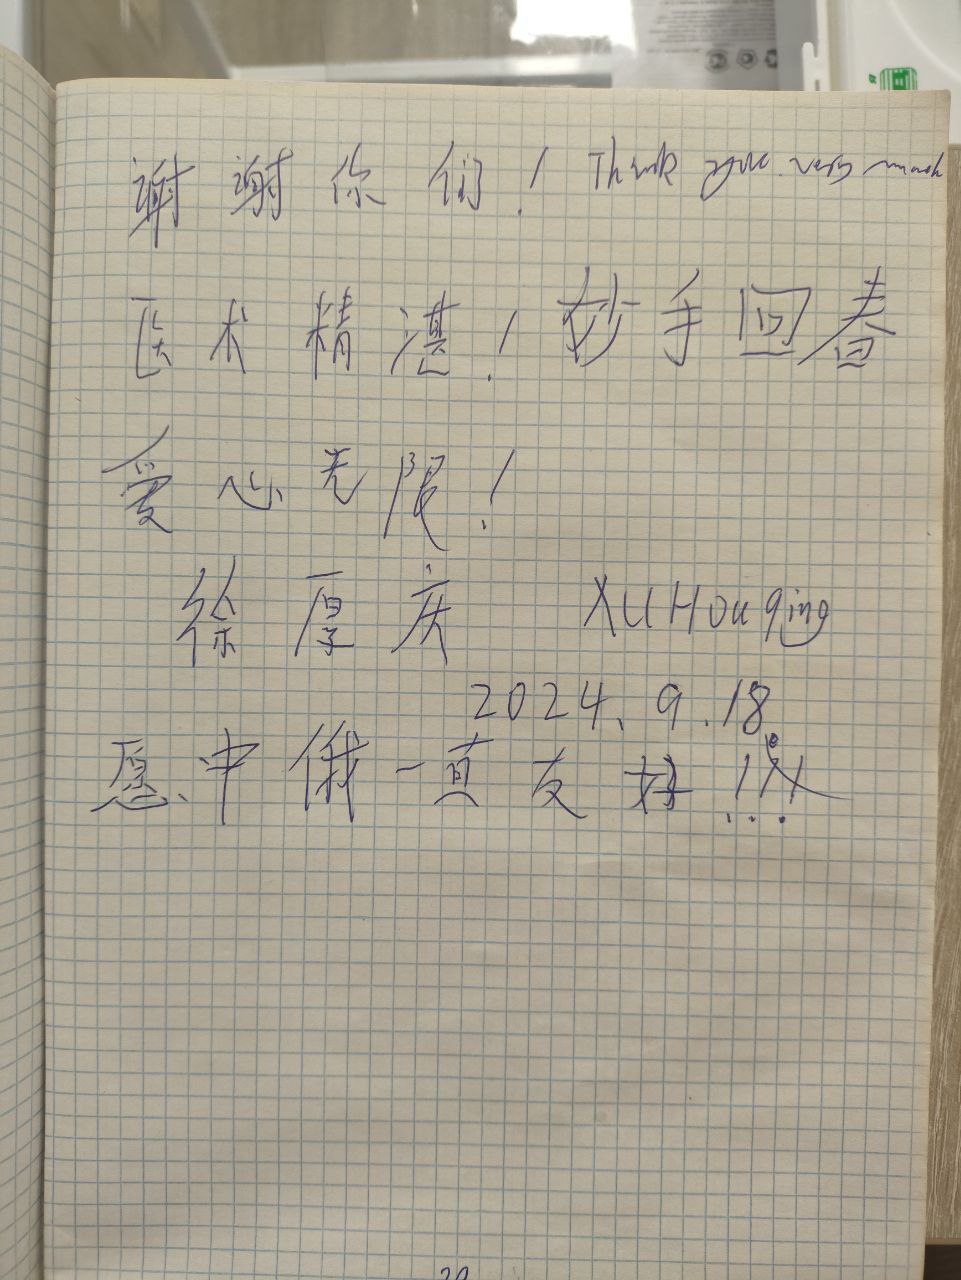 谢谢你们！Thank you very much
医术精湛！妙手回春
爱心无限！
徐厚庆 XU Houqing
2024.9.18
愿中俄一直友好！！！
20